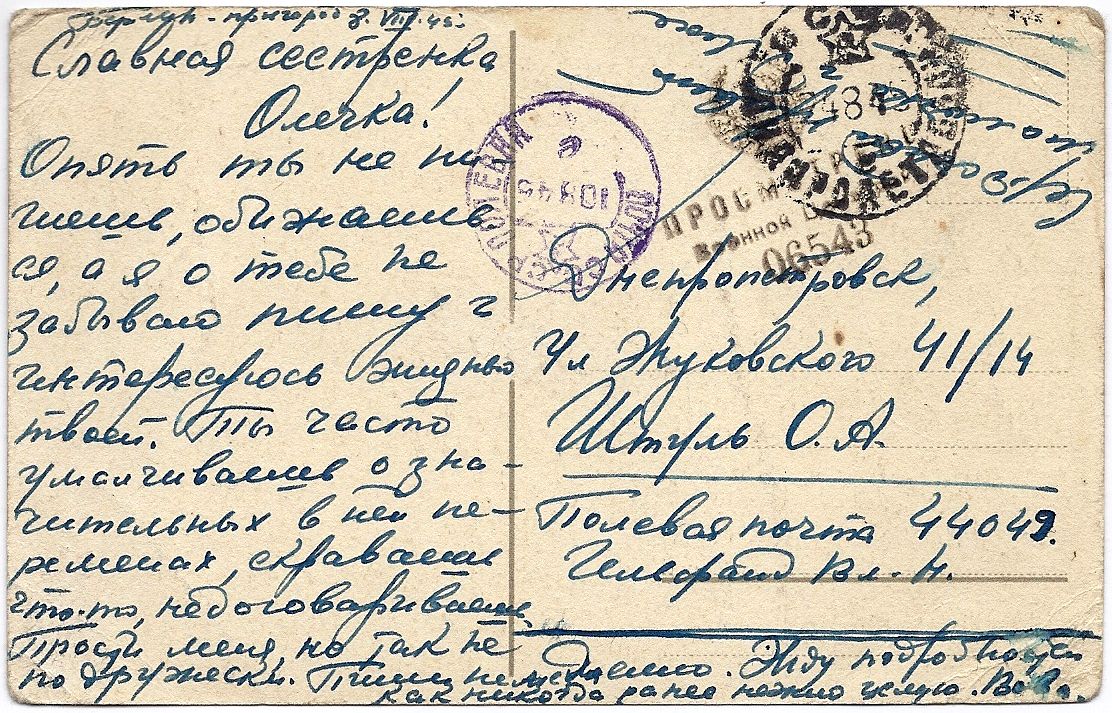 Берлин-пригород 3. VIII.45.
Славная сестренка
Олечка!
Опять ты не пи
шешь, обижаешь
ся, а я о тебе не
забываю пишу и
интересуюсь жизнью
твоей. Ты часто
умалчиваешь о зна-
чительных в ней пе-
ременах, скраваешь
что-то, недоговариваешь.
Прости меня, но так не
по дружески. Пиши немедленно. Жду подробностей
как никогда ранее нежно целую. Вова.
СССР ПОЛЕВАЯ ПОЧТА
10 8 45
4 8 45
ПРОСМОТРЕНО
Военной Цензурой
06543
Днепропетровск,
Ул Жуковского 41/14
Штуль О.А.
Полевая почта 44049.
Гельфанд Вл. Н.